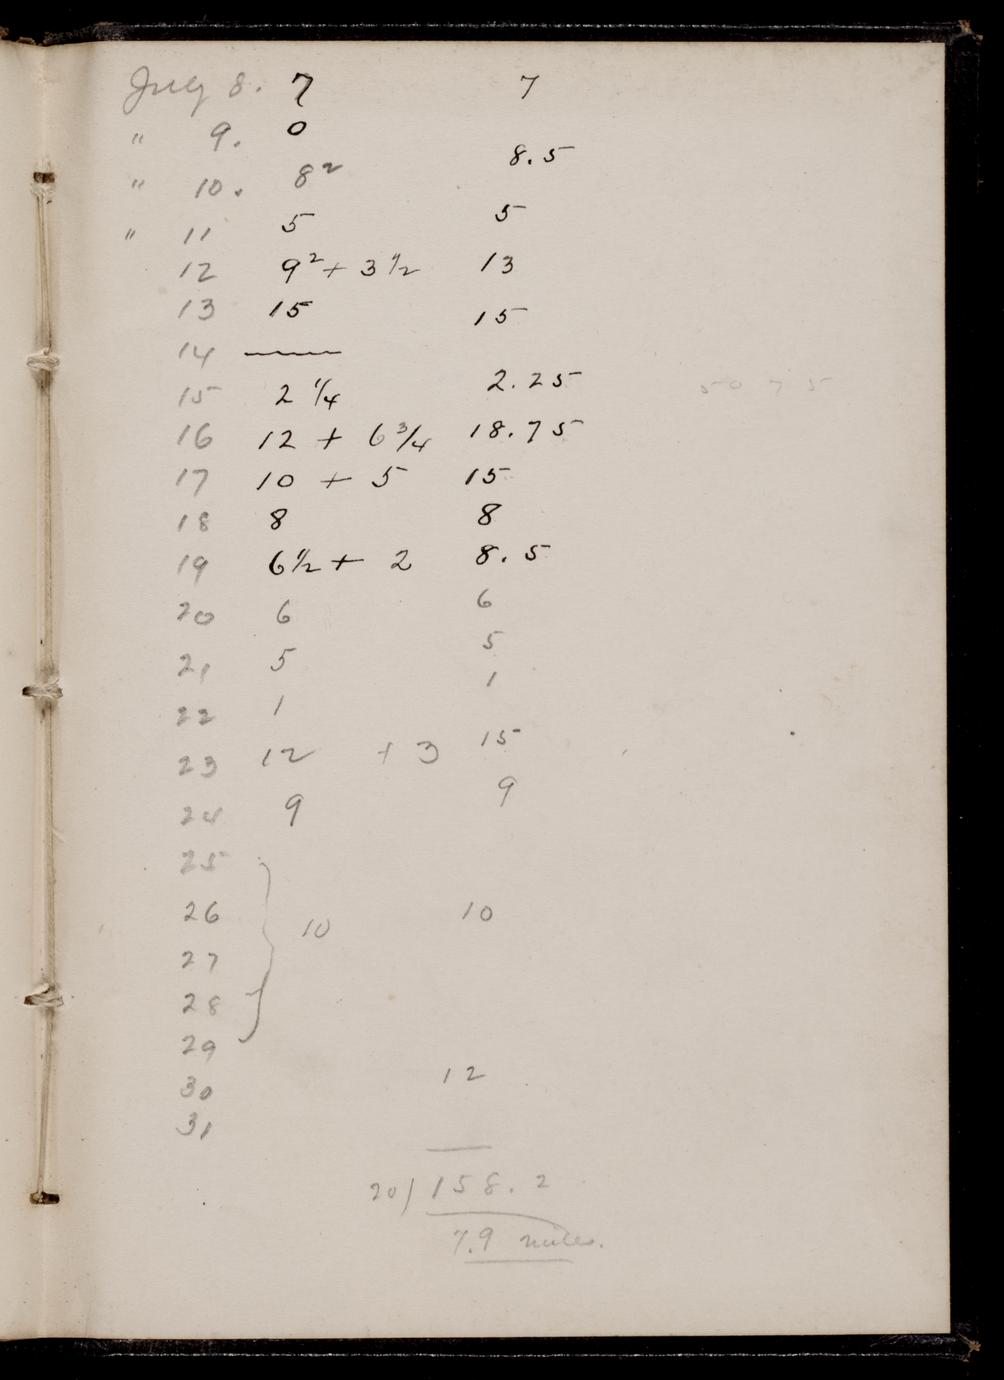 July 8. 7 7
" 9. 0
8.5
" 10. 8²
" 11 5 5
12 9² + 3 1/2 13
13 15 15
14 ——
15 2 1/4 2.25 50 75
16 12 + 6 3/4 18.75
17 10 + 5 15
18 8 8
19 6 1/2 + 2 8.5
20 6 6
21 5 5
22 1 1
23 12 + 3 15
24 9 9
25
26 10 10
27
28
29
30 12
31
20) 158.2
7.9 miles.